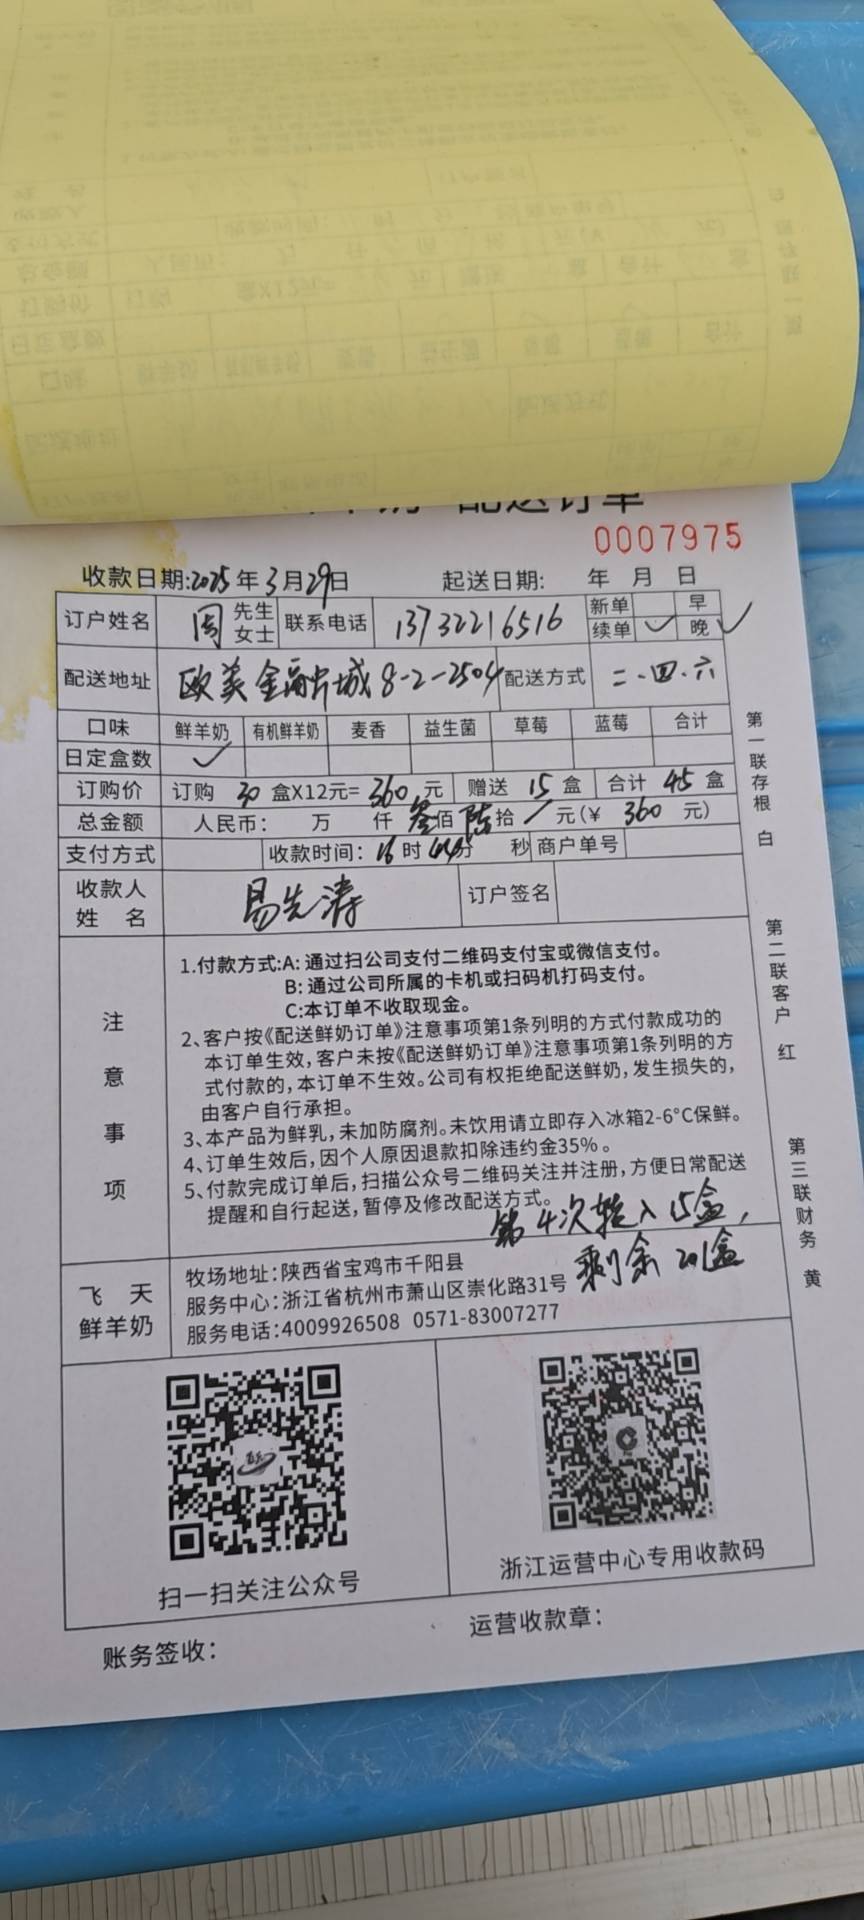 配送订单
0007975
收款日期:2025年3月29日 起送日期: 年 月 日
订户姓名 周 先生 女士 联系电话 13732216516 新单 早
续单 ✓ 晚 ✓
配送地址 欧美金融城8-2-2504 配送方式 二.四.六
口味 鲜羊奶 有机鲜羊奶 麦香 益生菌 草莓 蓝莓 合计
日定盒数 ✓
订购价 订购 30 盒X12元= 360 元 赠送 15 盒 合计 45 盒
总金额 人民币: 万 仟 叁佰 陆拾 / 元(¥ 360 元)
支付方式 收款时间: 16时44分 秒 商户单号
收款人姓名 易先涛 订户签名
注意事项
1.付款方式:A: 通过扫公司支付二维码支付宝或微信支付。
B: 通过公司所属的卡机或扫码机打码支付。
C:本订单不收取现金。
2、客户按《配送鲜奶订单》注意事项第1条列明的方式付款成功的
本订单生效,客户未按《配送鲜奶订单》注意事项第1条列明的方
式付款的,本订单不生效。公司有权拒绝配送鲜奶,发生损失的,
由客户自行承担。
3、本产品为鲜乳,未加防腐剂。未饮用请立即存入冰箱2-6°C保鲜。
4、订单生效后,因个人原因退款扣除违约金35%。
5、付款完成订单后,扫描公众号二维码关注并注册,方便日常配送
提醒和自行起送,暂停及修改配送方式。
第4次转入15盒,
剩余201盒
飞天
鲜羊奶
牧场地址:陕西省宝鸡市千阳县
服务中心:浙江省杭州市萧山区崇化路31号
服务电话:4009926508 0571-83007277
扫一扫关注公众号
浙江运营中心专用收款码
账务签收:
运营收款章:
第一联存根 白
第二联客户 红
第三联财务 黄